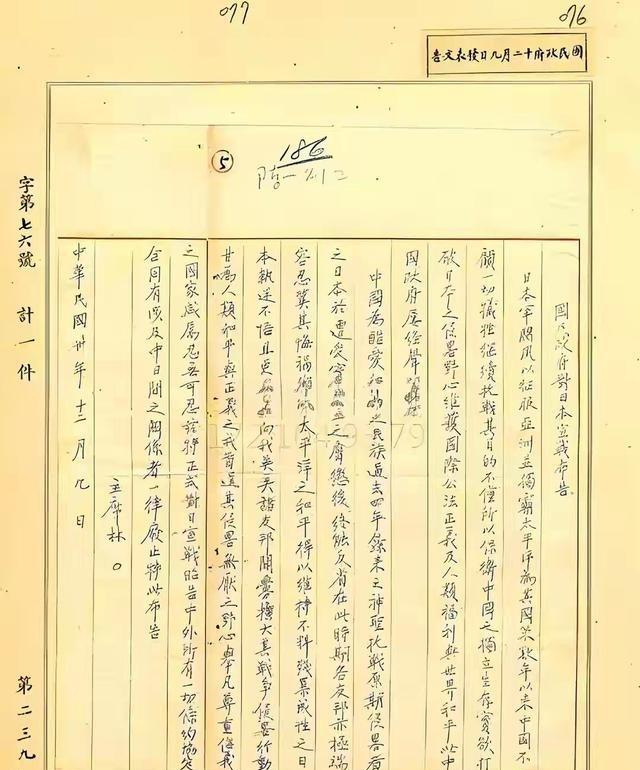 077
076
國民政府十二月九日發表文告
186
⑤
國民政府對日本宣戰布告
日本軍閥夙以征服亞洲並獨霸太平洋為其國策數年以來中國不
顧一切犧牲繼續抗戰其目的不僅所以保衛中國之獨立生存實欲打
破日本之侵畧野心維護國際公法正義及人類福利與世界和平此中
國政府屢經聲
中國為酷愛和之民族過去四年餘來之神聖抗戰原期侵畧者
之日本於遭受實之膺懲後終能反省在此時期各友邦亦極端
容忍冀其悔禍太平洋之和平得以維持不料殘暴成性之日
本執迷不悟且更向我英美諸友邦開釁擴大其戰爭侵畧行動
甘為人類和平與正義之戎首逞其侵畧無厭之野心舉凡尊重信義
之國家咸屬忍無可忍茲特正式對日宣戰昭告中外所有一切條約協定
合同有涉及中日間之關係者一律廢止特此布告
主席林○
中華民國卅年十二月九日
字第七六號 計一件 第二三九